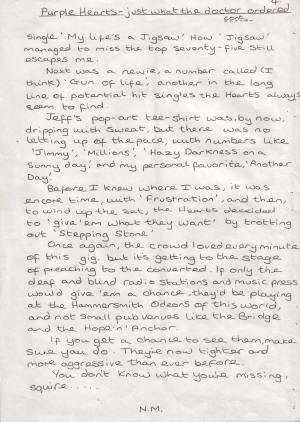 4.
Purple Hearts - just what the doctor ordered
cont...
single 'My life's a Jigsaw' How 'Jigsaw'
managed to miss the top seventy-five still
escapes me.
Next was a newie, a number called (I
think) 'Gun of life', another in the long
line of potential hit singles the Hearts always
seem to find.
Jeff's pop-art tee-shirt was, by now,
dripping with sweat, but there was no
letting up of the pace, with numbers like
'Jimmy', 'Millions', 'Hazy Darkness on a
Sunny day', and my personal favorite, 'Another
Day'
Before I knew where I was, it was
encore time, with 'Frustration', and then,
to wind up the set, the Hearts decided
to 'give 'em what they want' by trotting
out 'Stepping Stone'
Once again, the crowd loved every minute
of this gig, but its getting to the stage
of preaching to the converted. If only the
deaf and blind radio stations and music press
would give 'em a chance, they'd be playing
at the Hammersmith Odeons of this world,
and not small pub venues like the Bridge
and the Hope 'n' Anchor.
If you get a chance to see them, make
sure you do. They're now tighter and
more aggressive than ever before.
You don't know what you're missing,
squire.....
N.M.